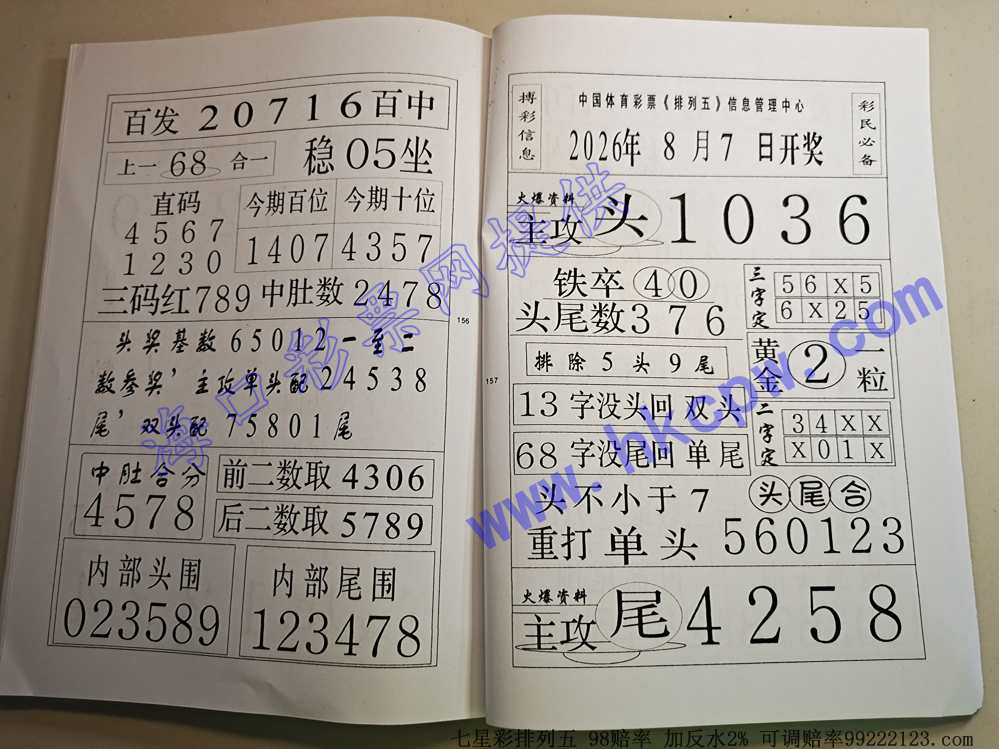 百发 20716 百中
上一 68 合一
稳 05 坐
直码
4567
1230
今期百位 今期十位
1407 4357
三码红 789 中肚数 2478
头奖基数 65012 一至二
数参奖，主攻单头配 24538
尾，双头配 75801 尾
中肚合分
4578
前二数取 4306
后二数取 5789
内部头围
023589
内部尾围
123478
156
157
搏彩信息
中国体育彩票《排列五》信息管理中心
2026年 8 月 7 日开奖
彩民必备
火爆资料
主攻 头 1036
铁卒 40
头尾数 376
三字定
56X5
6X25
排除 5 头 9 尾
黄金 2 一粒
13 字没头回 双头
68 字没尾回 单尾
二字定
34XX
X01X
头不小于 7
头尾合
重打 单 头 560123
火爆资料
主攻 尾 4258
海口彩票网提供
www.hkcpw.com
七星彩排列五 98赔率 加反水2% 可调赔率99222123.com